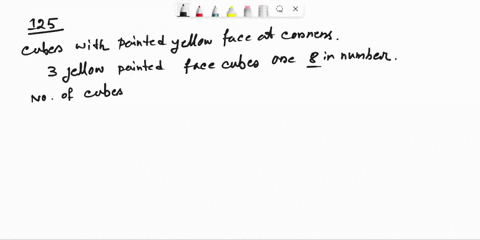 125
cubes with painted yellow face at corners.
3 yellow painted face cubes are 8 in number.
No. of cubes